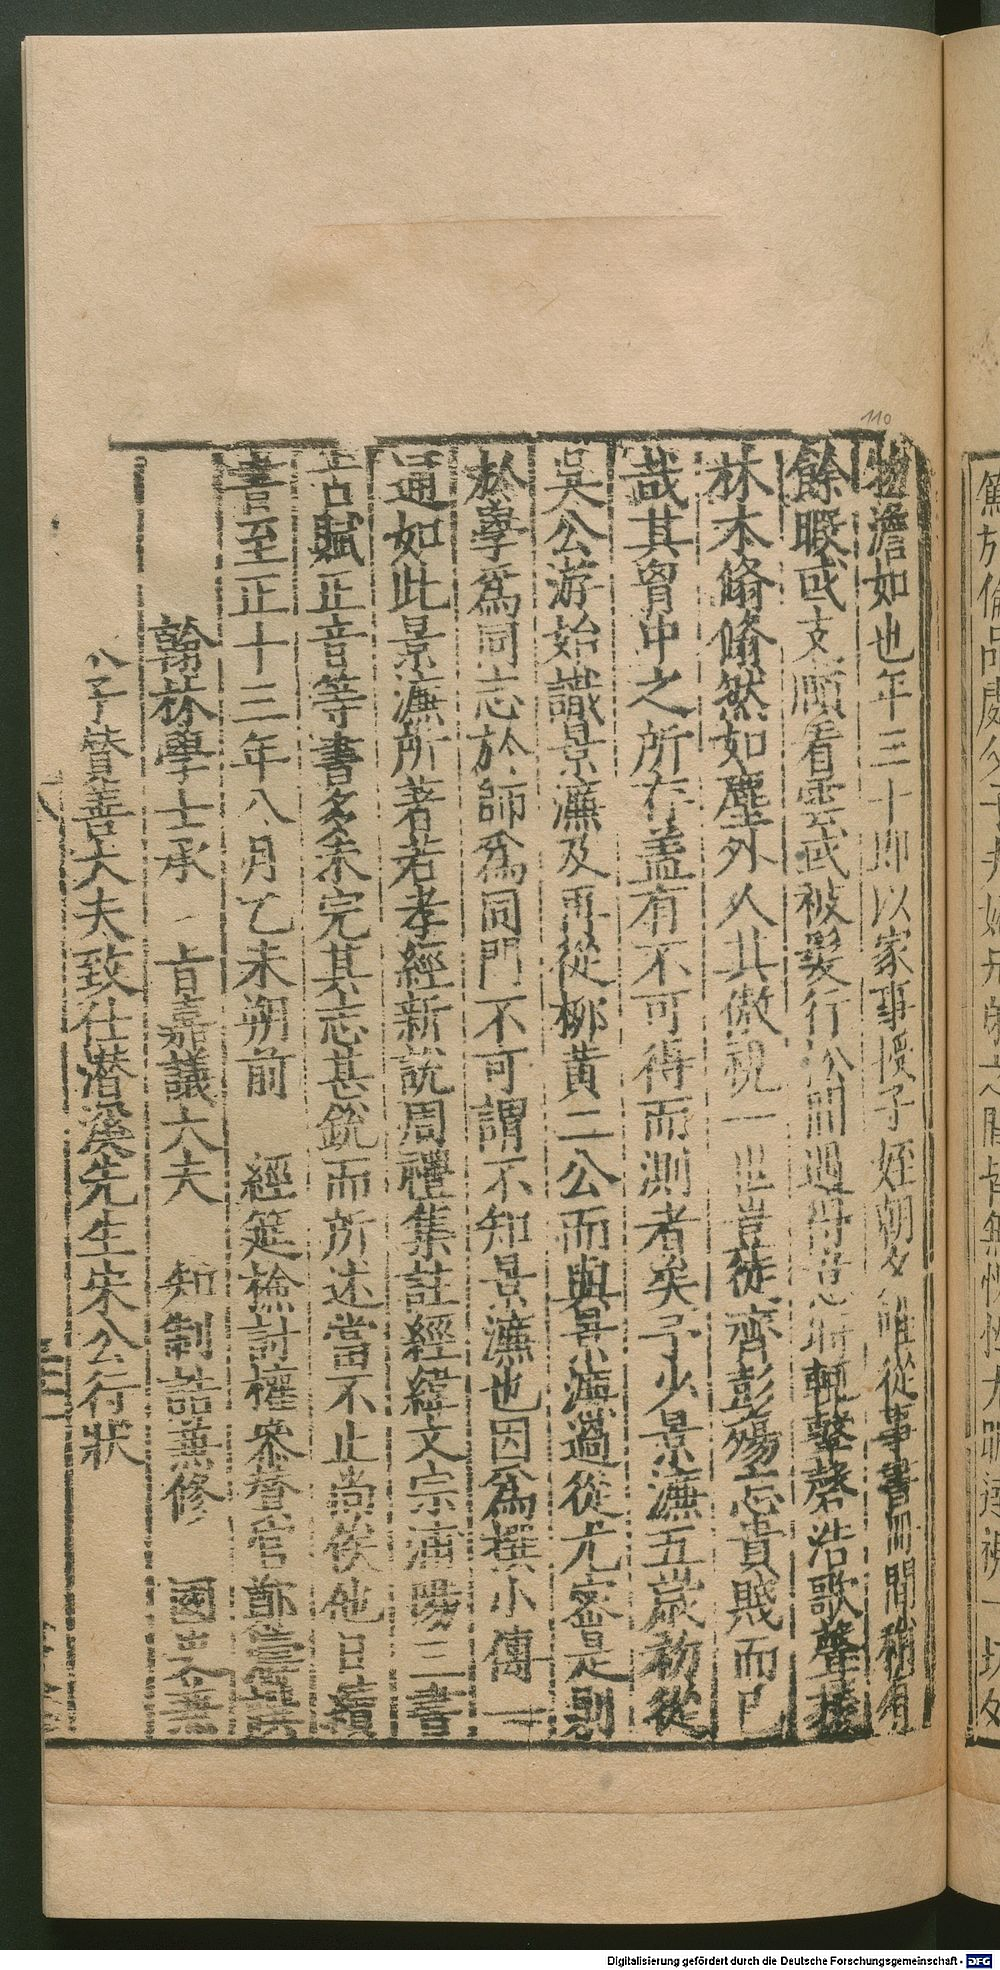 物澹如也年三十即以家事授子姪朝夕惟從事書册間稍有
餘暇或支頤看雲或被髮行松間遇得意時輒擊磬浩歌聲振
林木翛翛然如塵外人其傲視一世豈徒齊彭殤忘貴賤而已
哉其胷中之所存盖有不可得而測者矣予少景濂五歲初從
吳公游始識景濂及再從栁黄二公而與景濂過從尤密是則
於學爲同志於師爲同門不可謂不知景濂也因爲撰小傳一
通如此景濂所著若孝經新說周禮集註經緯文宗浦陽三書
古賦正音等書多未完其志甚銳而所述當不止尚俟他日續
書至正十三年八月乙未朔前 經筵檢討權叅贊官鄭濤撰
翰林學士承 旨嘉議大夫 知制誥兼修 國史兼
太子賛善大夫致仕潛溪先生宋公行狀
110
Digitalisierung gefördert durch die Deutsche Forschungsgemeinschaft - DFG